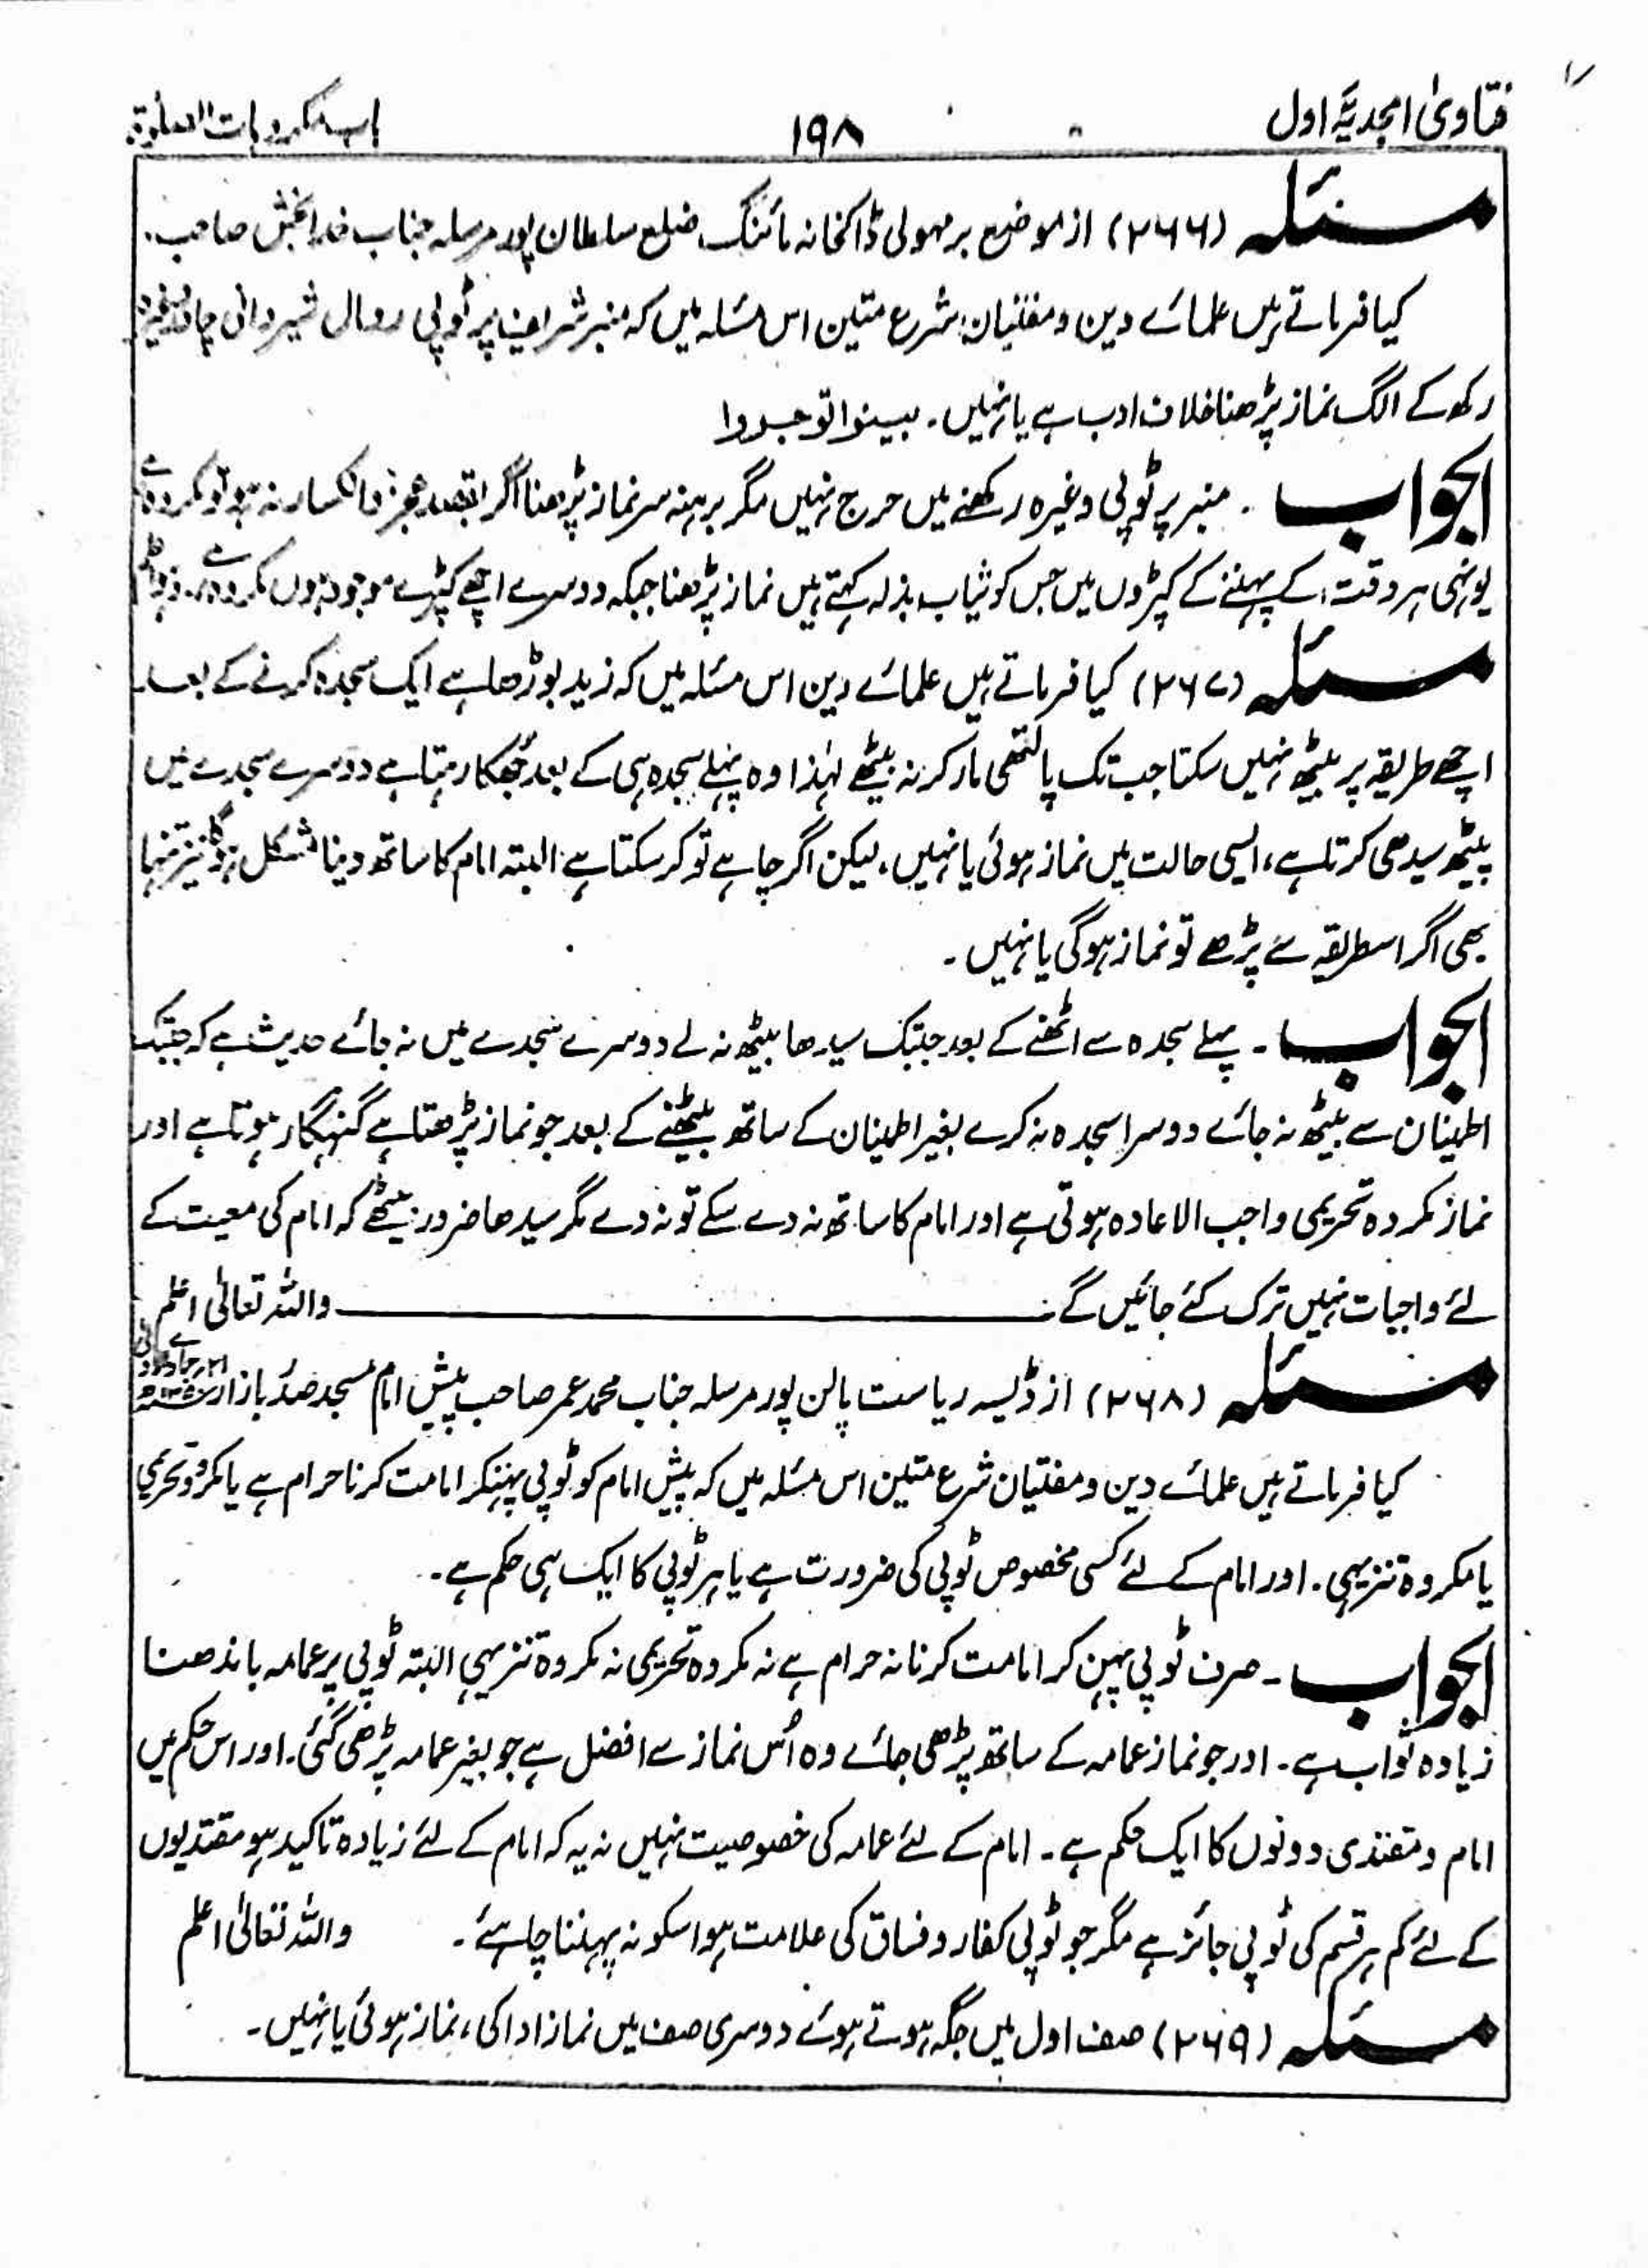 فتاویٰ امجدیہ اول ۱۹۸ باب مکروہات الصلوٰۃ
مسئلہ (۲۶۶) از موضع برمہولی ڈاکخانہ مائنگ ضلع سلطان پور مرسلہ جناب خدا بخش صاحب۔
کیا فرماتے ہیں علمائے دین و مفتیان شرع متین اس مسئلہ میں کہ منبر شریف پر ٹوپی رومال شیروانی چادر وغیرہ
رکھ کے الگ نماز پڑھنا خلاف ادب ہے یا نہیں۔ بینوا توجروا
الجواب ۔ منبر پر ٹوپی وغیرہ رکھنے میں حرج نہیں مگر برہنہ سر نماز پڑھنا اگر بقصد عجز و انکسار نہ ہو تو مکروہ ہے
یونہی ہر وقت کے پہننے کے کپڑوں میں جس کو ثیاب بذلہ کہتے ہیں نماز پڑھنا جبکہ دوسرے اچھے کپڑے موجود ہوں مکروہ ہے۔
مسئلہ (۲۶۷) کیا فرماتے ہیں علمائے دین اس مسئلہ میں کہ زید بوڑھا ہے ایک سجدہ کرنے کے بعد
اچھے طریقہ پر بیٹھ نہیں سکتا جب تک پالتھی مار کر نہ بیٹھے لہٰذا وہ پہلے سجدہ ہی کے بعد جُھکا رہتا ہے دوسرے سجدے میں
پیٹھ سیدھی کرتا ہے، ایسی حالت میں نماز ہوئی یا نہیں، لیکن اگر چاہے تو کر سکتا ہے البتہ امام کا ساتھ دینا مشکل ہوگا نیز تنہا
بھی اگر اسطریقہ سے پڑھے تو نماز ہوگی یا نہیں۔
الجواب ۔ پہلے سجدہ سے اٹھنے کے بعد جبتک سیدھا بیٹھ نہ لے دوسرے سجدے میں نہ جائے حدیث ہے کہ جبتک
اطینان سے بیٹھ نہ جائے دوسرا سجدہ نہ کرے بغیر اطینان کے ساتھ بیٹھنے کے بعد جو نماز پڑھتا ہے گنہگار ہوتا ہے اور
نماز مکروہ تحریمی واجب الاعادہ ہوتی ہے اور امام کا ساتھ نہ دے سکے تو نہ دے مگر سیدھا ضرور بیٹھے کہ امام کی معیت کے
لئے واجبات نہیں ترک کئے جائیں گے۔ واللہ تعالیٰ اعلم
مسئلہ (۲۶۸) از ڈیسہ ریاست پالن پور مرسلہ جناب محمد عمر صاحب پیش امام مسجد صدر بازار
کیا فرماتے ہیں علمائے دین و مفتیان شرع متین اس مسئلہ میں کہ پیش امام کو ٹوپی پہنکر امامت کرنا حرام ہے یا مکروہ تحریمی
یا مکروہ تنزیہی۔ اور امام کے لئے کسی مخصوص ٹوپی کی ضرورت ہے یا ہر ٹوپی کا ایک ہی حکم ہے۔
الجواب ۔ صرف ٹوپی پہن کر امامت کرنا نہ حرام ہے نہ مکروہ تحریمی نہ مکروہ تنزیہی البتہ ٹوپی پر عمامہ باندھنا
زیادہ ثواب ہے۔ اور جو نماز عمامہ کے ساتھ پڑھی جائے وہ اُس نماز سے افضل ہے جو بغیر عمامہ پڑھی گئی۔ اور اس حکم میں
امام و مقتدی دونوں کا ایک حکم ہے۔ امام کے لئے عمامہ کی خصوصیت نہیں نہ یہ کہ امام کے لئے زیادہ تاکید ہو مقتدیوں
کے لئے کم ہر قسم کی ٹوپی جائز ہے مگر جو ٹوپی کفار و فساق کی علامت ہو اسکو نہ پہننا چاہئے۔ واللہ تعالیٰ اعلم
مسئلہ (۲۶۹) صف اول میں جگہ ہوتے ہوئے دوسری صف میں نماز ادا کی، نماز ہوئی یا نہیں۔